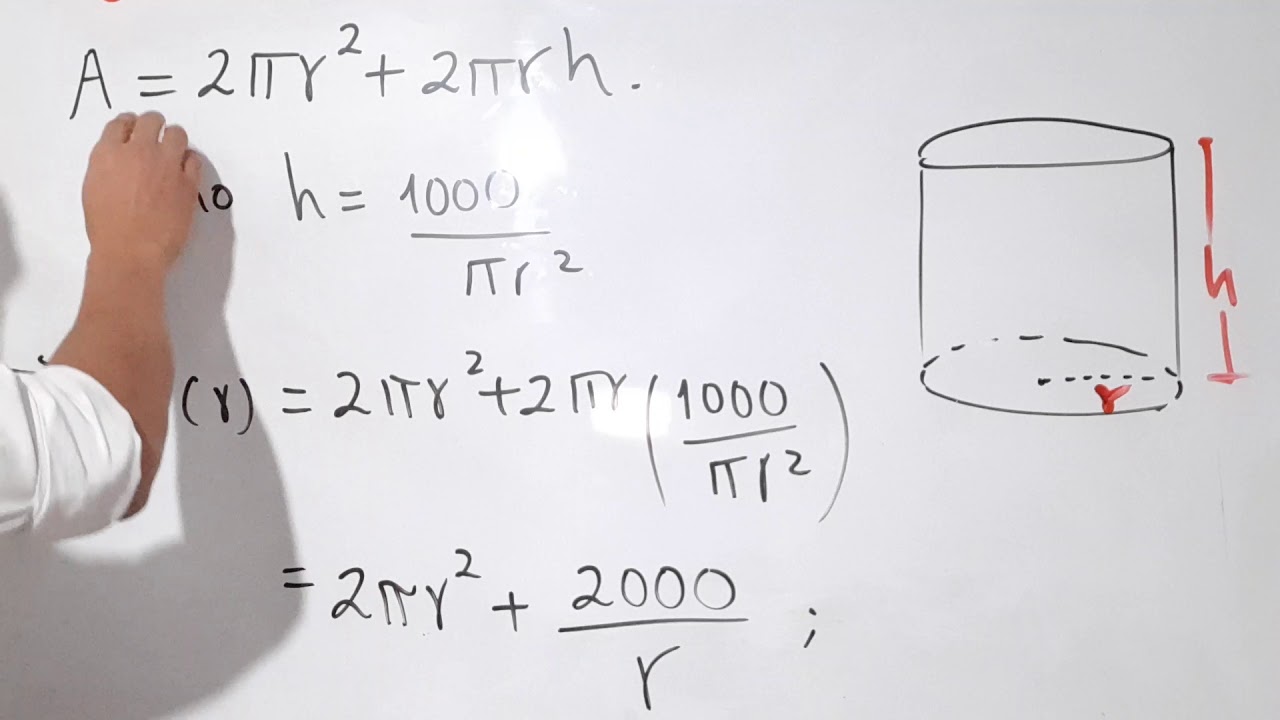 A = 2πr² + 2πrh.
h = 1000/πr²
(r) = 2πr² + 2πr(1000/πr²)
= 2πr² + 2000/r ;
h
r